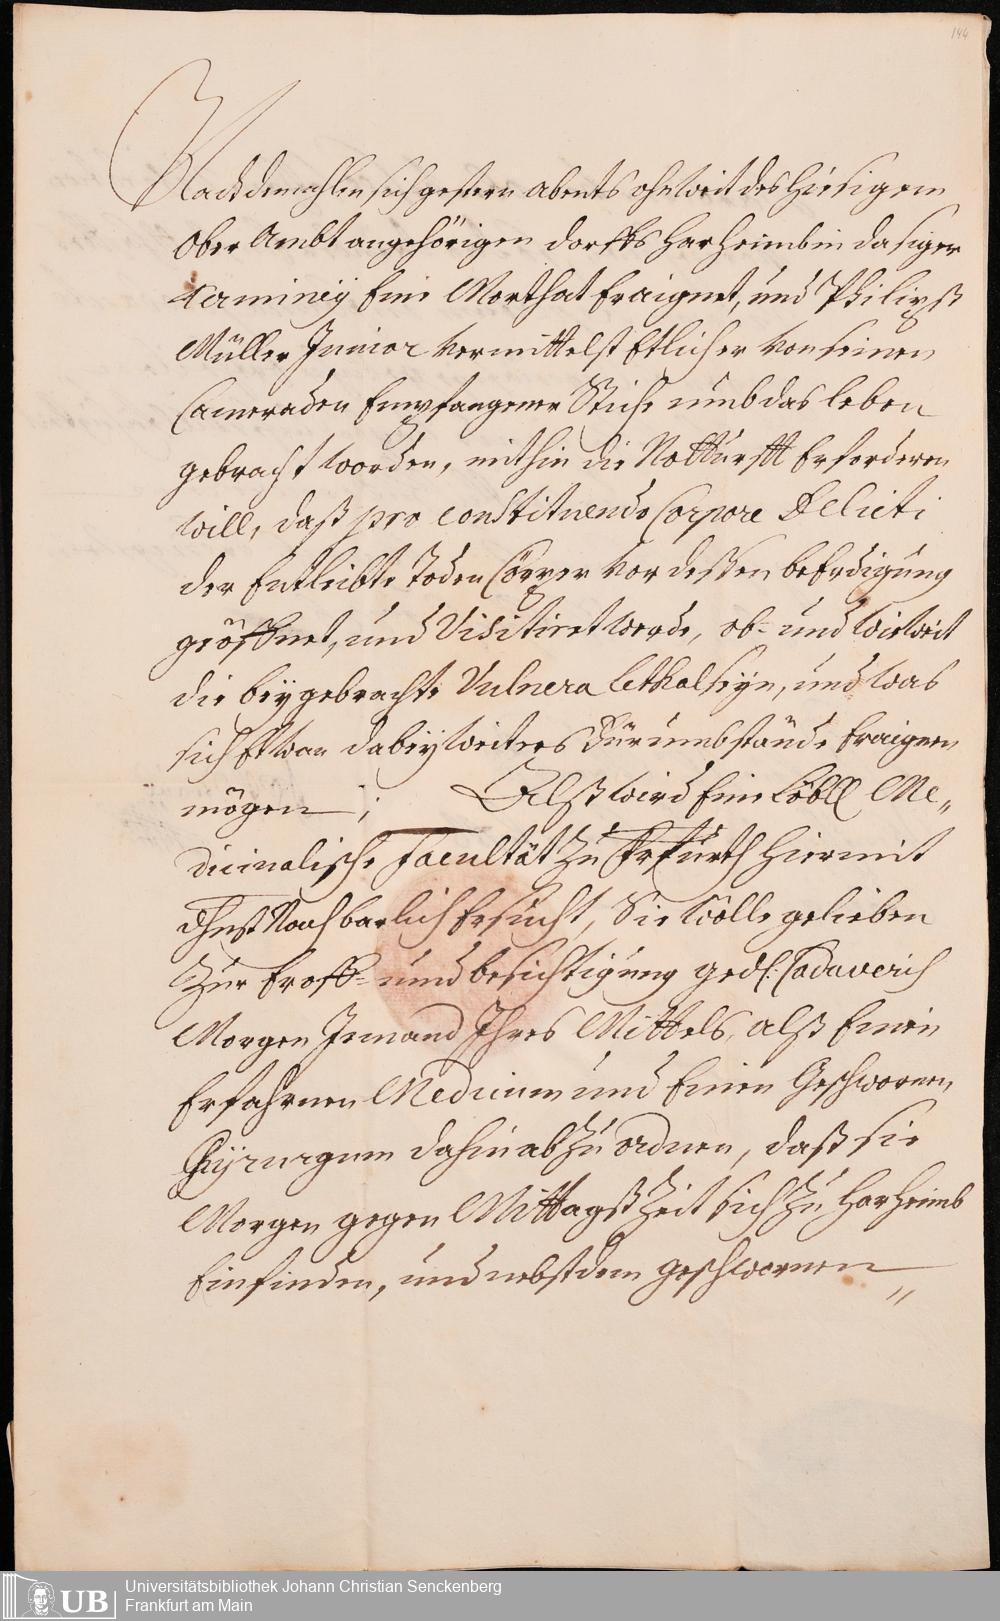 144
Nachdemahlen sich gestern abents ohnweit des hiesigem
Ober Ambt angehörigen dorffs Harheimb in dasiger
terminey Eine Morthat Eraignet, und Philipß
Müller Junior vermittelst Etlicher von seinen
Cameraden Empfangener Stiche umb das leben
gebracht worden, mithin die Notturfft Erforderen
will, daß pro constituendo Corpore Delicti
der Entleibte Toden Cörper vor deßen beErdigung
geöffnet, und Visitiret werde, ob- und wie weit
die beygebrachte Vulnera lethal seyn, und was
sich Etwan dabey weiters für umbstände Eraignen
mögen; Alß wird Eine Löbll Me„
dicinalische Facultät zu Frfurth hiermit
dhnst Nachbarlich Ersucht, Sie wolle gelieben
zur Eroff- und besichtigung gedl. Cadaverich
Morgen Jemand Ihres Mittels, alß Einen
Erfahrnen Medicum und Einen Geschwornen
Chyrurgum dahin abzuordnen, daß sie
Morgen gegen Mittagßzeit sich zu Harheimb
Einfinden, und nebst dem geschwornen „
UB
Universitätsbibliothek Johann Christian Senckenberg
Frankfurt am Main